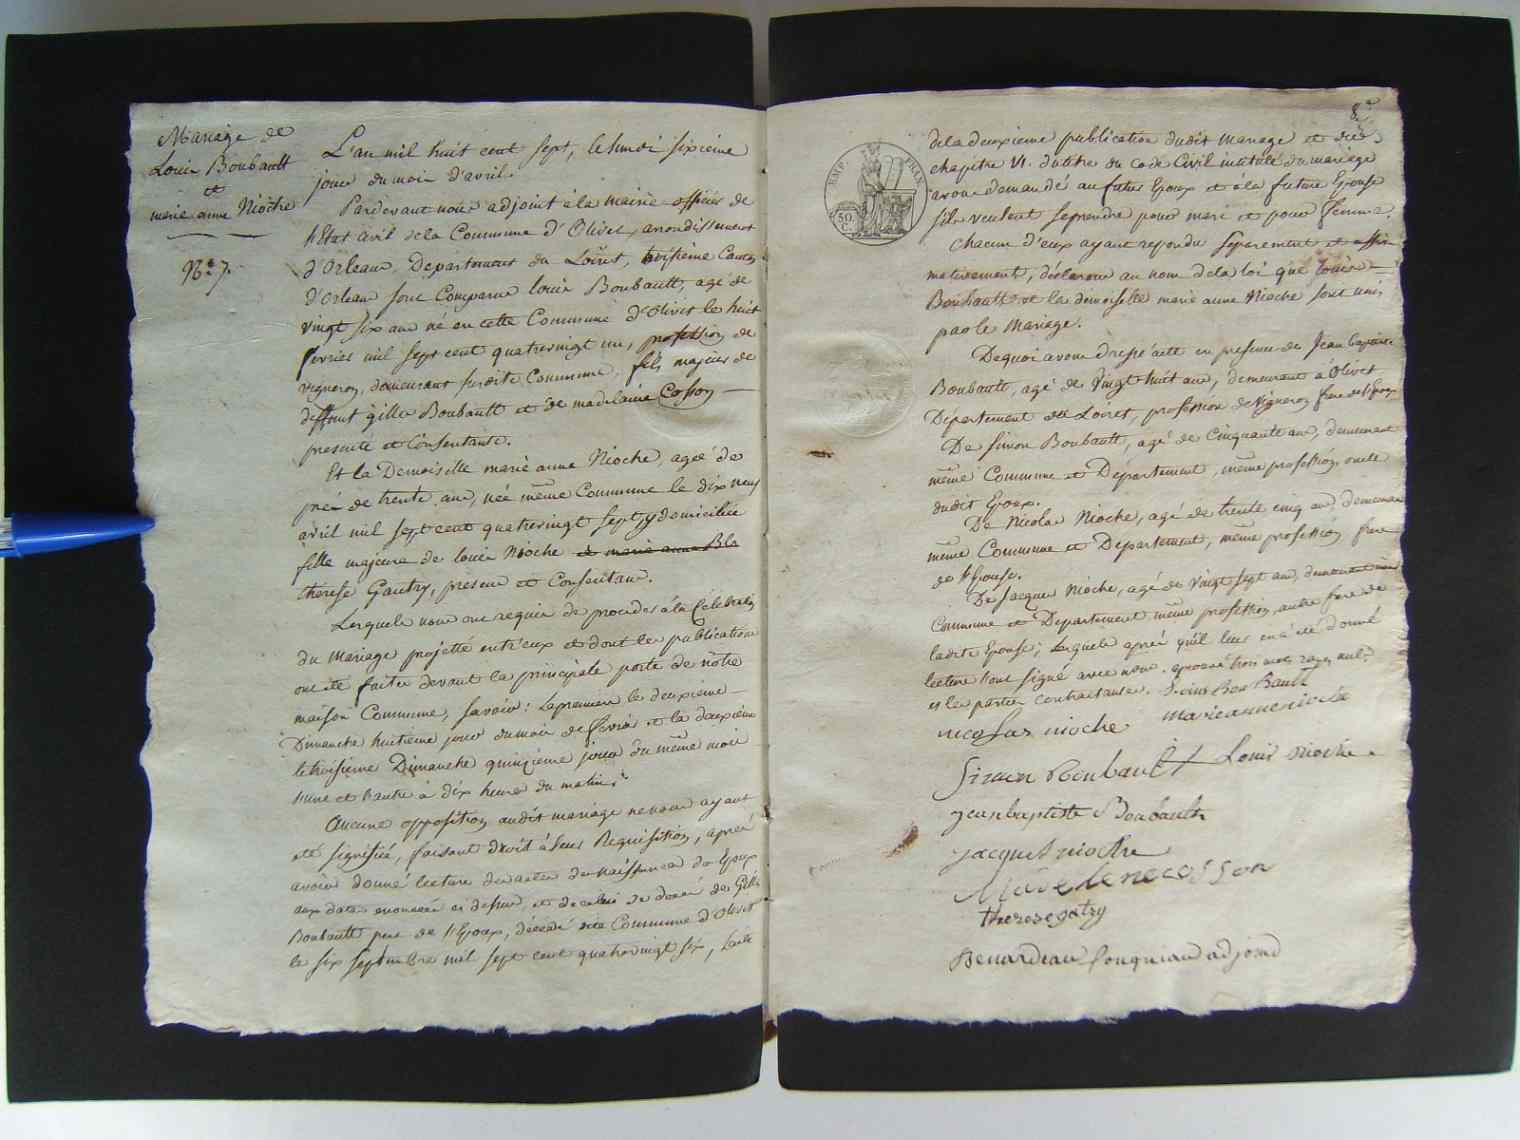 Mariage de
Louis Boubault
et
marie anne Nioche
N.º 7.
L'an mil huit cent sept, le lundi sixieme
jour du mois d'avril.
Pardevant nous adjoint à la mairie officier de
l'Etat civil de la Commune d'Olivet, arrondissement
d'Orleans, Departement du Loiret, troisieme Canton
d'Orleans sont Comparus louis Boubault, agé de
vingt six ans né en cette Commune d'Olivet le huit
fevrier mil sept cent quatrevingt un, profession de
vigneron, demeurant susdite Commune, fils majeur de
deffunt gille Boubault et de madelaine Cosson
presente et Consentante.
Et la Demoiselle marie anne Nioche, agée de
près de trente ans, née même Commune le dix neuf
avril mil sept cent quatrevingt sept, y domiciliée
fille majeure de louis Nioche et marie anne Bla
therese Gautry, présens et Consentans.
Lesquels nous ont requis de proceder à la Célébration
du mariage projetté entr'eux et dont les publications
ont été faites devant la principale porte de nôtre
maison Commune, savoir: la premiere le deuxieme
Dimanche huitieme jour du mois de fevrier et la deuxieme
le troisieme Dimanche quinzieme jour du même mois
l'une et l'autre à dix heures du matin;
Aucune opposition audit mariage ne nous ayant
été signifiée, faisant droit à leur Requisition, après
avoir donné lecture des actes de naissance des Epoux
aux dates enoncées ci dessus, et de celui de décès de Gille
Boubault pere de l'Epoux, décédé dite Commune d'Olivet
le six septembre mil sept cent quatrevingt six, celle
8.e
EMP. FRAN.
50. C.
de la deuxieme publication dudit mariage et du
chapitre VI. du titre du Code Civil intitulé du mariage
avons demandé au futur Epoux et à la future Epouse
s'ils veulent se prendre pour mari et pour femme.
Chacun d'eux ayant repondu separement et affir
mativement, déclarons au nom de la loi que louis
Boubault et la demoiselle marie anne Nioche sont unis
par le Mariage.
De quoi avons dressé acte en presence de Jean baptiste
Boubault, agé de vingt huit ans, demeurant à Olivet
Département du Loiret, profession de vigneron frere de l'Epoux
De Simon Boubault, agé de Cinquante ans, demeurant
même Commune et Département, même profession, oncle
dudit Epoux.
De Nicolas Nioche, agé de trente cinq ans, demeurant
même Commune et Departement, même profession frere
de l'Epouse.
De Jacque Nioche, agé de vingt sept ans, demeurant même
Commune et Departement même profession, autre frere de
ladite Epouse; Lesquels après qu'il leur en a été donné
lecture l'ont signé avec nous. aprouvé trois mots rayés nuls
et les parties contractantes. Louis Boubault
marieanne nioche
nicolas nioche
Simon Boubault
Louis nioche
jean baptiste Boubault
jacques nioche
Madelene cosson
therese gatry
Benardeau fougniau adjoind